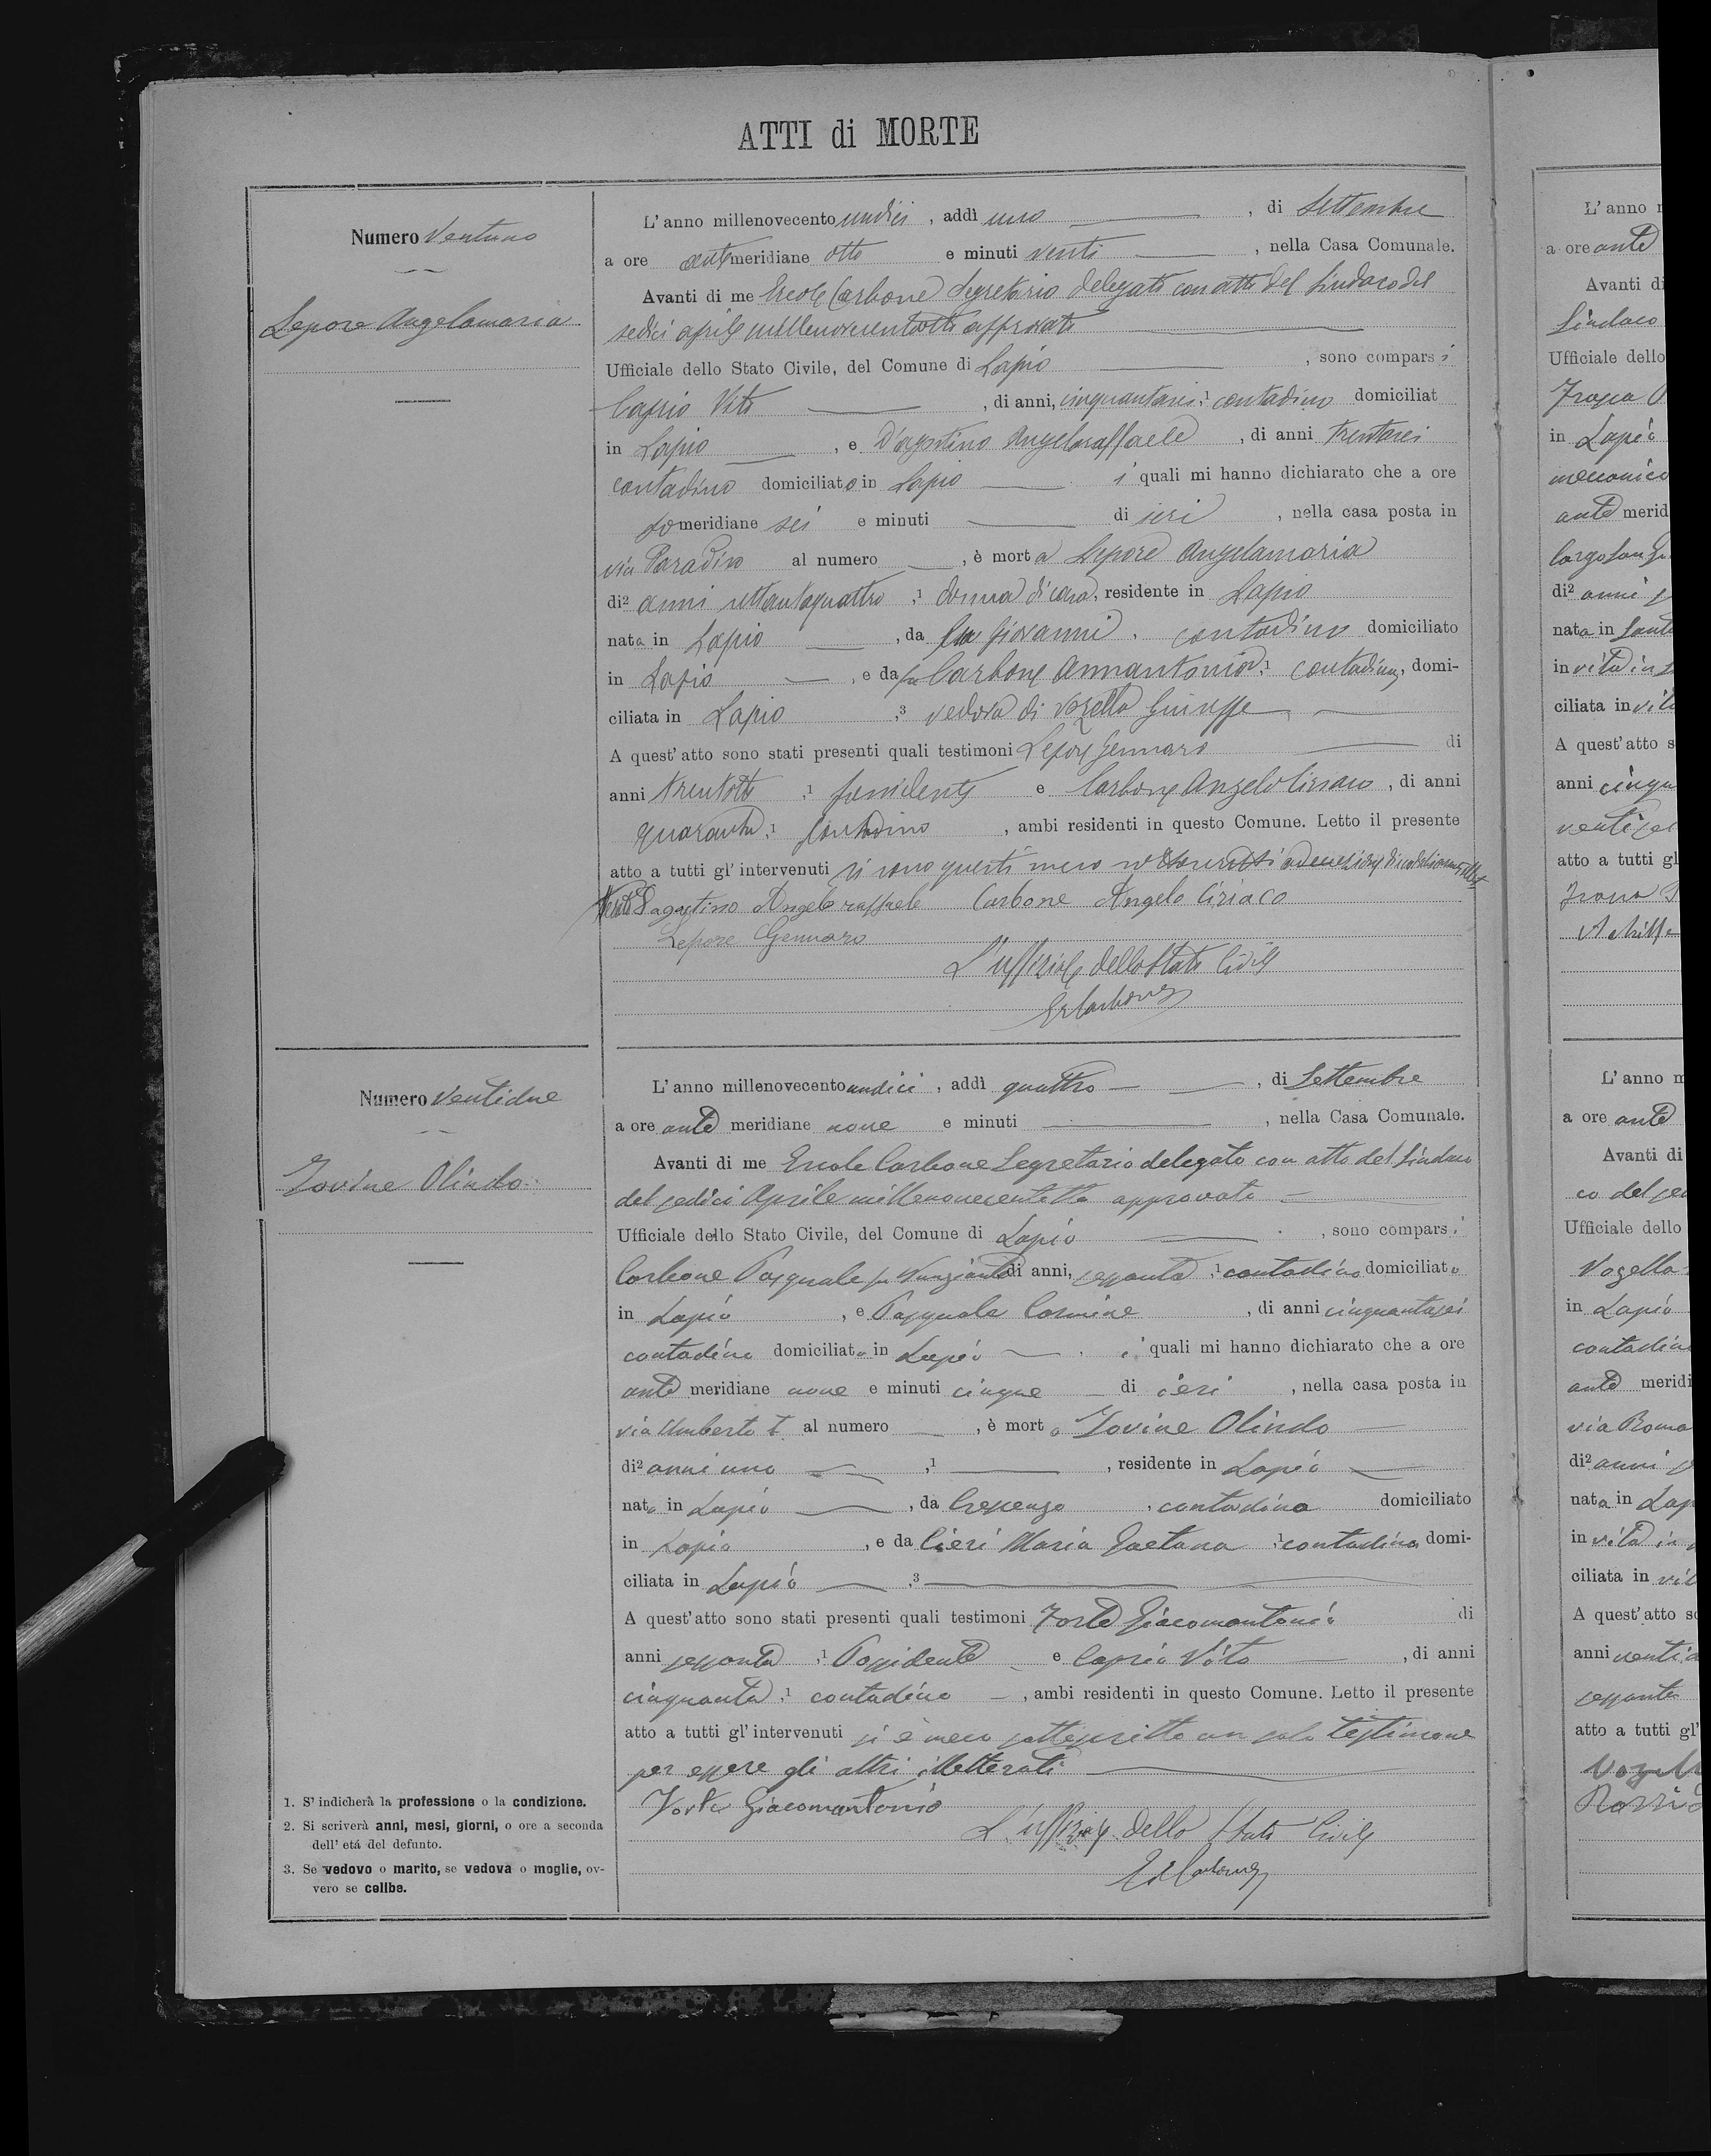 ATTI di MORTE
Numero Ventuno
Lepore Angelamaria
L'anno millenovecento undici, addì uno, di Settembre
a ore antimeridiane otto e minuti venti, nella Casa Comunale.
Avanti di me Ercole Carbone Segretario delegato con atto del Sindaco del
sedici aprile millenovecentotto approvato
Ufficiale dello Stato Civile, del Comune di Lapio, sono comparsi
Caprio Vito, di anni, cinquantasei,1 contadino domiciliat
in Lapio, e D'agostino Angeloraffaele, di anni trentasei
contadino domiciliato in Lapio i quali mi hanno dichiarato che a ore
pomeridiane sei e minuti di ieri, nella casa posta in
via Paradiso al numero, è morta Lepore Angelamaria
di2 anni settantaquattro,1 donna di casa, residente in Lapio
nata in Lapio, da fu Giovanni, contadino domiciliato
in Lapio, e da fu Carbone Annantonia,1 contadina, domi-
ciliata in Lapio,3 vedova di Vozella Giuseppe
A quest'atto sono stati presenti quali testimoni Lepore Gennaro di
anni trentotto,1 possidente e Carbone Angelo Ciriaco, di anni
quaranta,1 contadino, ambi residenti in questo Comune. Letto il presente
atto a tutti gl'intervenuti si sono questi meco sottoscritti ad eccezione di
D'agostino Angelo raffaele Carbone Angelo Ciriaco
Lepore Gennaro
L'uffiziale dello Stato Civile
E. Carbone
Numero Ventidue
Iovine Olindo
L'anno millenovecento undici, addì quattro, di Settembre
a ore antimeridiane nove e minuti, nella Casa Comunale.
Avanti di me Ercole Carbone Segretario delegato con atto del Sindaco
del sedici Aprile millenovecentotto approvato
Ufficiale dello Stato Civile, del Comune di Lapio, sono comparsi
Carbone Pasquale fu Nunziante di anni, sessanta,1 contadino domiciliato
in Lapio, e Pasquale Carmine, di anni cinquantasei
contadino domiciliato in Lapio, i quali mi hanno dichiarato che a ore
antimeridiane nove e minuti cinque di ieri, nella casa posta in
via Umberto I al numero, è morto Iovine Olindo
di2 anni uno,1, residente in Lapio
nato in Lapio, da Crescenzo, contadino domiciliato
in Lapio, e da Cieri Maria Gaetana,1 contadina domi-
ciliata in Lapio,3
A quest'atto sono stati presenti quali testimoni Forte Giacomantonio di
anni sessanta,1 Possidente e Caprio Vito, di anni
cinquanta,1 contadino, ambi residenti in questo Comune. Letto il presente
atto a tutti gl'intervenuti si è meco sottoscritto un solo testimone
per essere gli altri illetterati
Forte Giacomantonio
L'uffiziale dello Stato Civile
E. Carbone
1. S'indicherà la professione o la condizione.
2. Si scriverà anni, mesi, giorni, o ore a seconda
dell'etá del defunto.
3. Se vedovo o marito, se vedova o moglie, ov-
vero se celibe.
L'anno
a ore ante
Avanti di
Sindaco
Ufficiale dello
in Lapio
meccanico
ante merid
di2 anni
nata in
in vita in
ciliata in
A quest'atto s
anni
atto a tutti gl
L'anno m
a ore ante
Avanti di
co del
Ufficiale dello
Vozella
in Lapio
contadino
ante meridi
via Roma
di2 anni
nata in Lap
in vita in
ciliata in
A quest'atto so
anni
sessanta
atto a tutti gl'